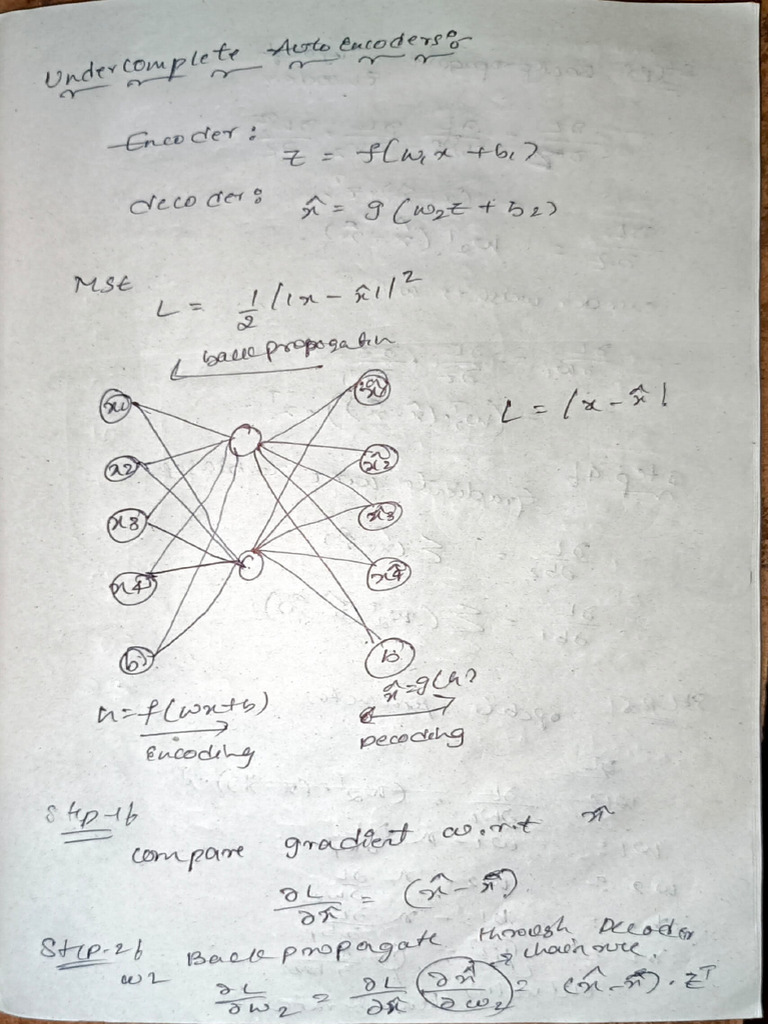 Undercomplete Auto Encoders:
Encoder: z = f(w₁x + b₁)
decoder: x̂ = g(w₂z + b₂)
MSE L = 1/2 ||x - x̂||²
back propagation
x1 x̂1
L = |x - x̂|
x2 x̂2
x3 x̂3
x4 x̂4
b b
h = f(wx+b) x̂ = g(h)
Encoding Decoding
Step-1:
compare gradient w.r.t x̂
∂L/∂x̂ = (x̂ - x)
Step-2: Back propagate through Decoder
w2 → chain rule.
∂L/∂w₂ = ∂L/∂x̂ ∂x̂/∂w₂ = (x̂ - x) · zᵀ